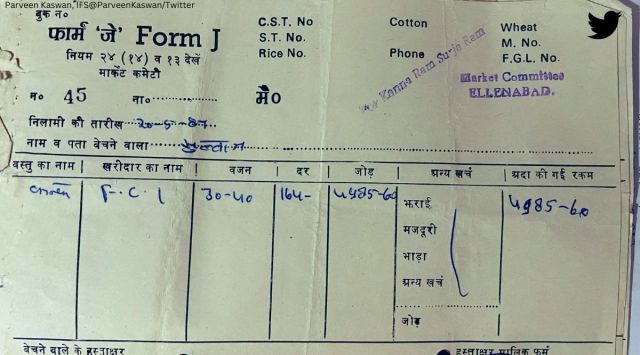 Parveen Kaswan, IFS@ParveenKaswan/Twitter
बुक न०
फार्म 'जे' Form J
नियम २४ (१४) व १३ देखें
मार्केट कमेटी
C.S.T. No
S.T. No.
Rice No.
Cotton
Phone
Wheat
M. No.
F.G.L. No.
Kanna Ram Surja Ram
Market Committee
ELLENABAD.
न० 45 ना०
मै०
निलामी की तारीख 20-5-87
नाम व पता बेचने वाला
वस्तु का नाम खरीदार का नाम वजन दर जोड़ अन्य खर्च अदा की गई रकम
F.C.I 30-40 164- 4985-60 भराई 4985-60
मजदूरी
भाड़ा
अन्य खर्च
जोड़
बेचने वाले के हस्ताक्षर हस्ताक्षर मालिक फर्म